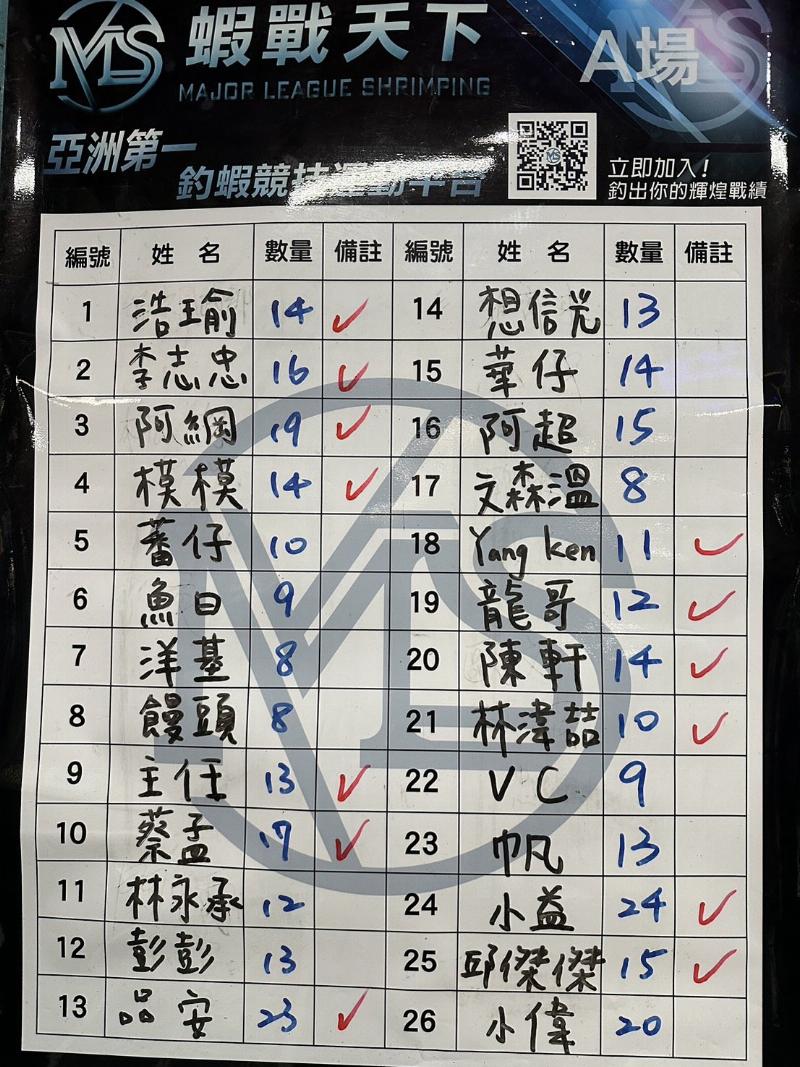 MLS 蝦戰天下 A場
MAJOR LEAGUE SHRIMPING
亞洲第一
釣蝦競技運動平台
立即加入!
釣出你的輝煌戰績
編號 姓名 數量 備註 編號 姓名 數量 備註
1 浩瑜 14 ✓ 14 想信光 13
2 李志忠 16 ✓ 15 華仔 14
3 阿綱 19 ✓ 16 阿超 15
4 模模 14 ✓ 17 文森溫 8
5 蕃仔 10 18 Yang Ken 11 ✓
6 魚日 9 19 龍哥 12 ✓
7 洋基 8 20 陳軒 14 ✓
8 饅頭 8 21 林湋喆 10 ✓
9 主任 13 ✓ 22 VC 9
10 蔡孟 17 ✓ 23 帆 13
11 林永承 12 24 小益 24 ✓
12 彭彭 13 25 邱傑傑 15 ✓
13 品安 23 ✓ 26 小偉 20